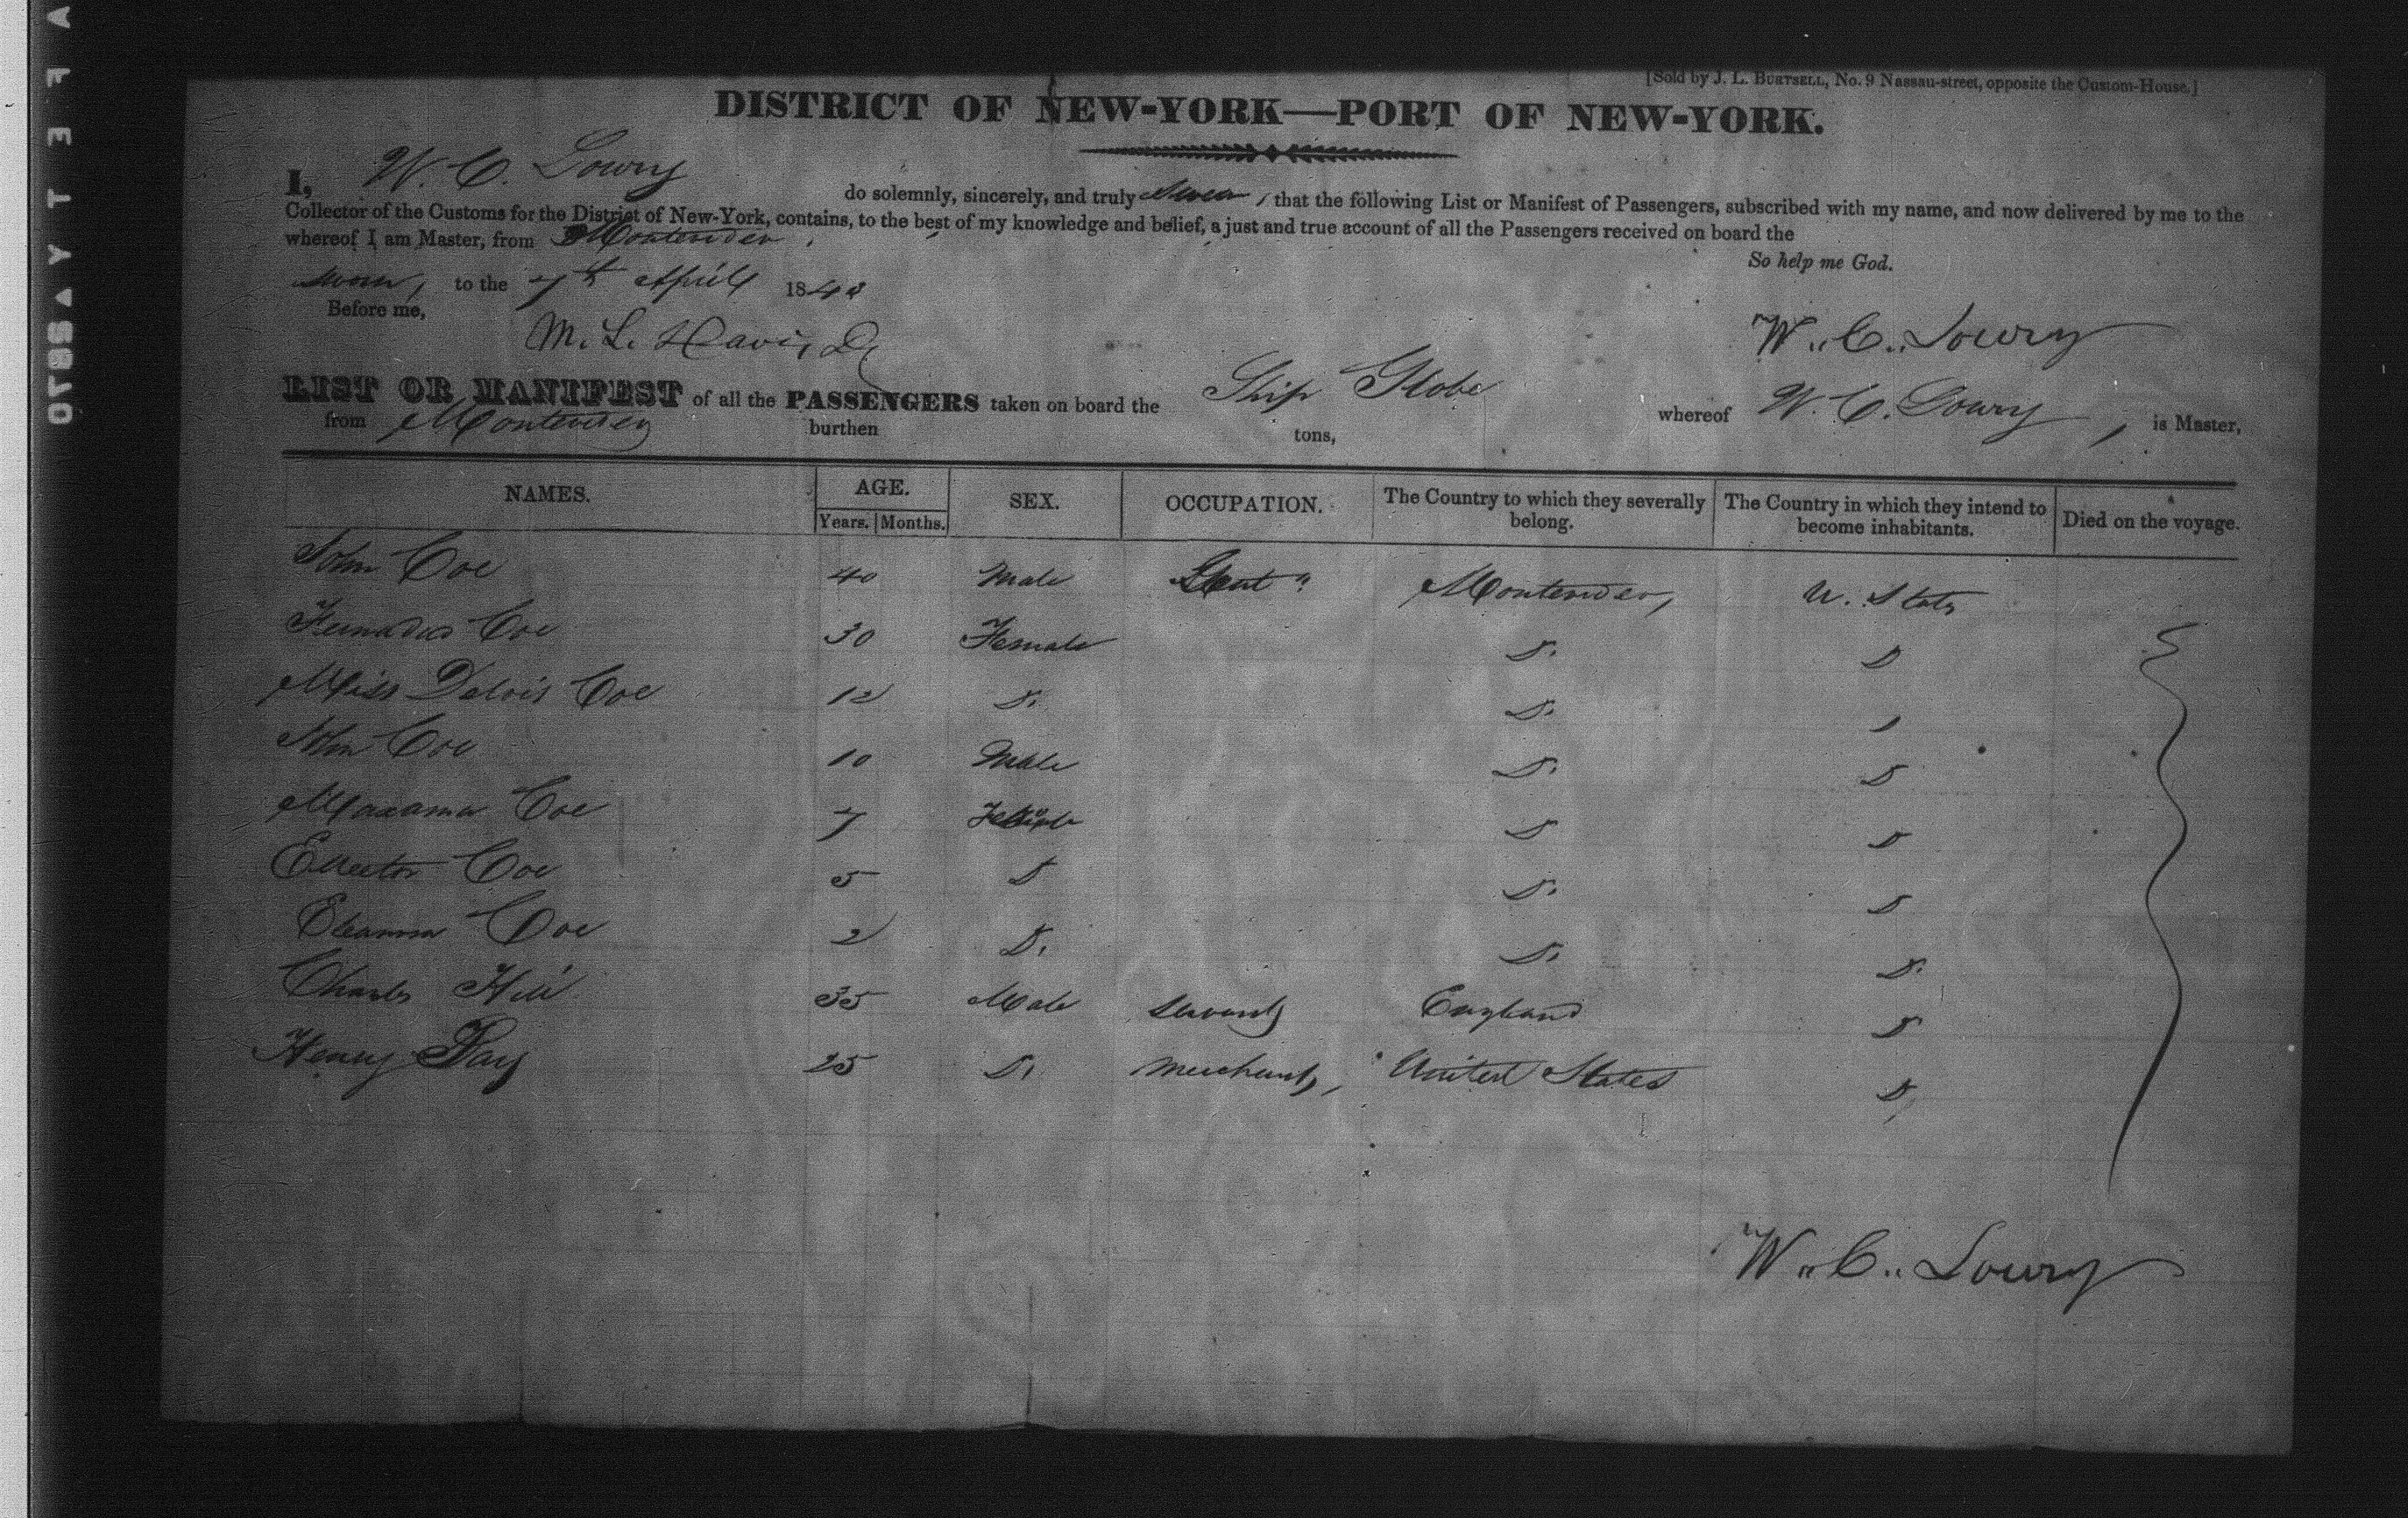 [Sold by J. L. BURTSELL, No. 9 Nassau-street, opposite the Custom-House.]
DISTRICT OF NEW-YORK—PORT OF NEW-YORK.
I, W. C. Lowry do solemnly, sincerely, and truly swear, that the following List or Manifest of Passengers, subscribed with my name, and now delivered by me to the
Collector of the Customs for the District of New-York, contains, to the best of my knowledge and belief, a just and true account of all the Passengers received on board the
whereof I am Master, from Montevideo.
So help me God.
Sworn, to the 7th April 184
Before me,
M. L. Davis, D
W. C. Lowry
LIST OR MANIFEST of all the PASSENGERS taken on board the Ship Globe whereof W. C. Lowry, is Master,
from Montevideo burthen tons,
NAMES. AGE. SEX. OCCUPATION. The Country to which they severally belong. The Country in which they intend to become inhabitants. Died on the voyage.
Years. Months.
John Coe 40 Male Gent " Montevideo, U. States
Coe 30 Female D. D
Miss Delois Coe 12 D. D.
John Coe 10 Male D. D
Coe 7 Female D D
Coe 5 D D. D
Eleanora Coe 2 D. D. D.
Charles Hill 35 Male Servant England D
Henry Fay 25 D. Merchant, United States D,
W. C. Lowry